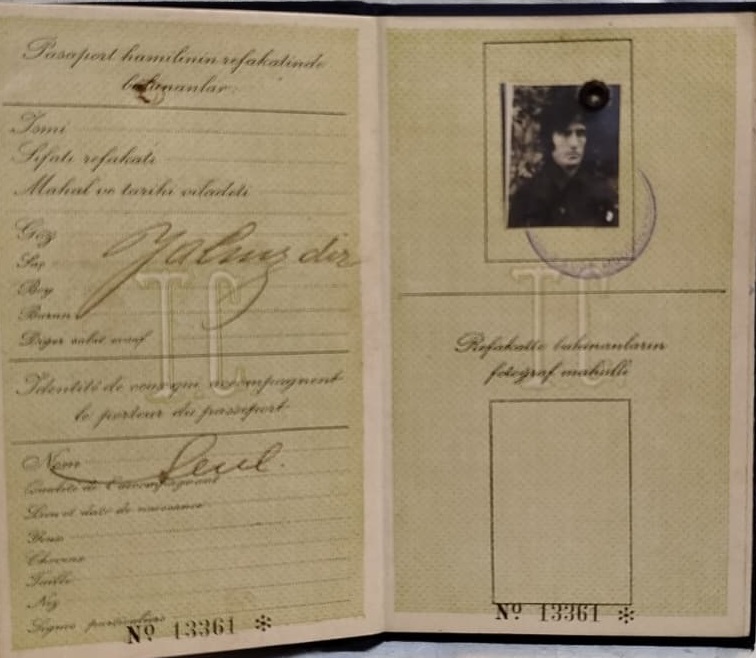 Pasaport hamilinin refakatinde
bulunanlar:
İsmi
Sıfatı refakati
Mahal ve tarihi viladeti
Göz
Saç
Boy
Burun
Yalnızdır
T.C
Identité de ceux qui accompagnent
le porteur du passeport
Nom
Seul.
Qualité de l'accompagnant
Lieu et date de naissance
Yeux
Cheveux
Taille
Nez
Signes particuliers
Nº 13361 *
T.C
Refakatte bulunanların
fotoğraf mahalli
Nº 13361 *